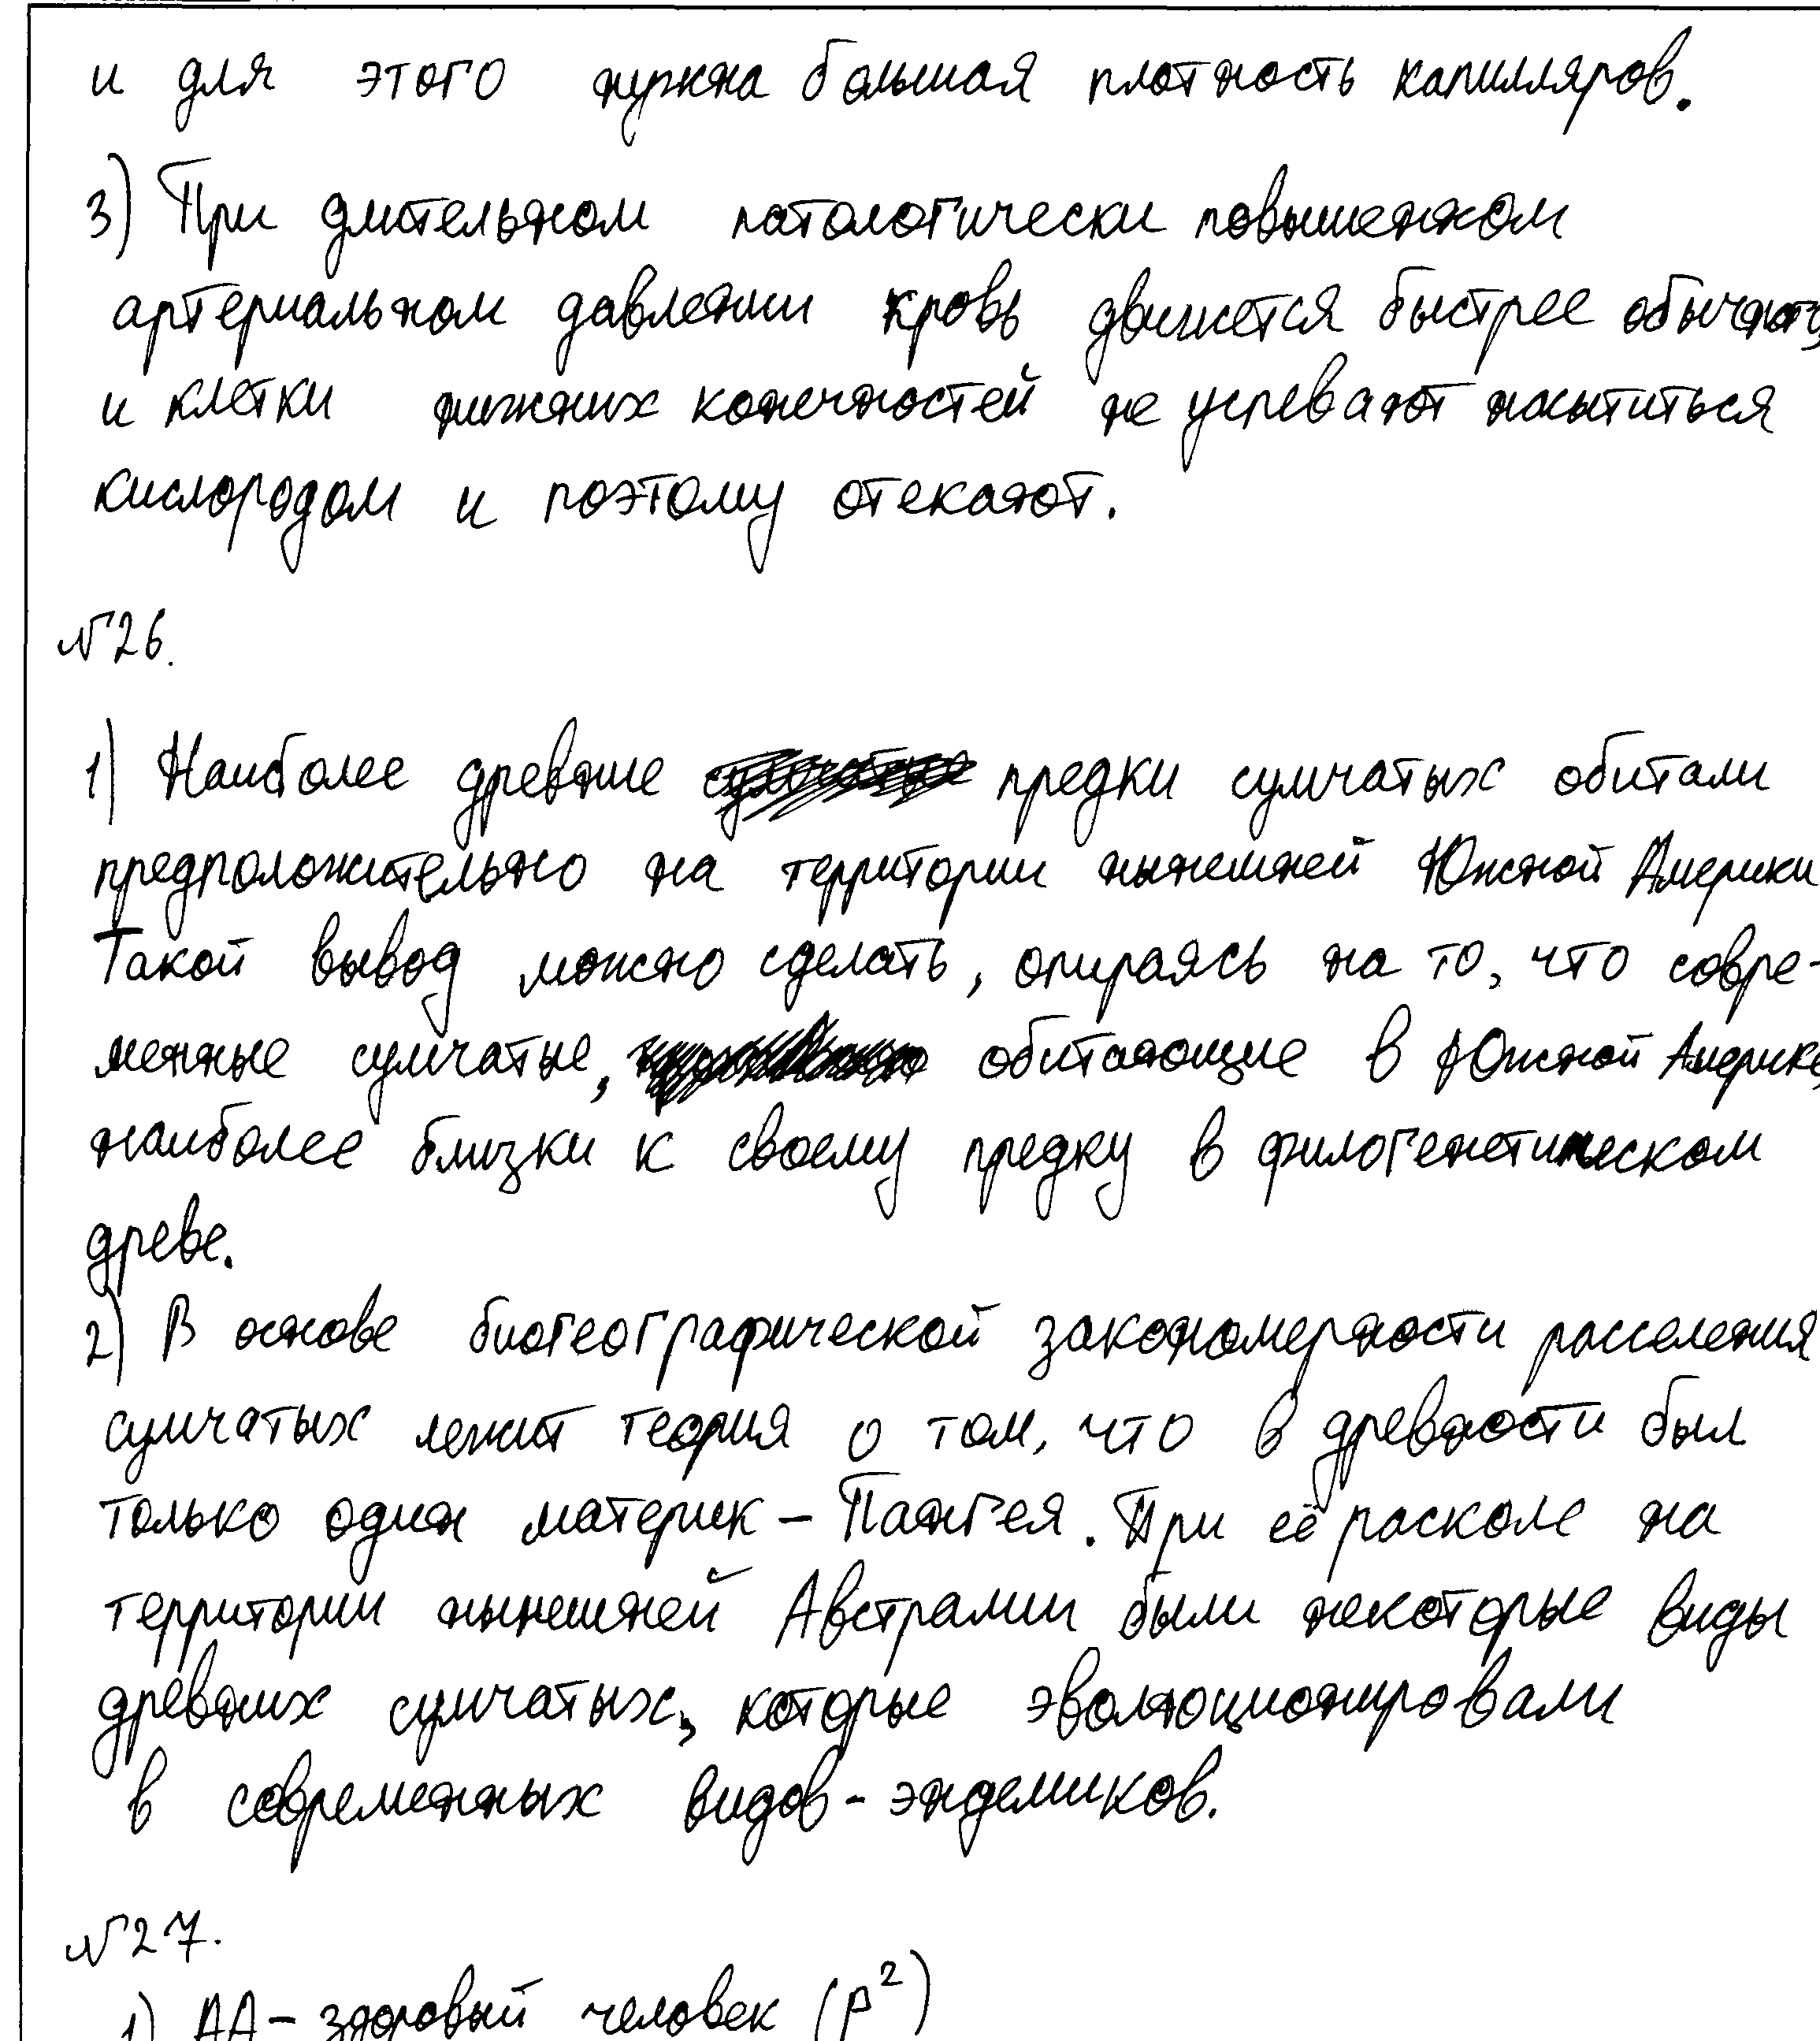 и для этого нужна большая плотность капилляров.
3) При длительном патологически повышенном
артериальном давлении кровь движется быстрее обычного,
и клетки нижних конечностей не успевают насытиться
кислородом и поэтому отекают.
№26.
1) Наиболее древние предки сумчатых обитали
предположительно на территории нынешней Южной Америки
Такой вывод можно сделать, опираясь на то, что совре-
менные сумчатые, обитающие в Южной Америке,
наиболее близки к своему предку в филогенетическом
древе.
2) В основе биогеографической закономерности расселения
сумчатых лежит теория о том, что в древности был
только один материк - Пангея. При её расколе на
территории нынешней Австралии были некоторые виды
древних сумчатых, которые эволюционировали
в современных видов - эндемиков.
№27.
1) АА - здоровый человек (p²)